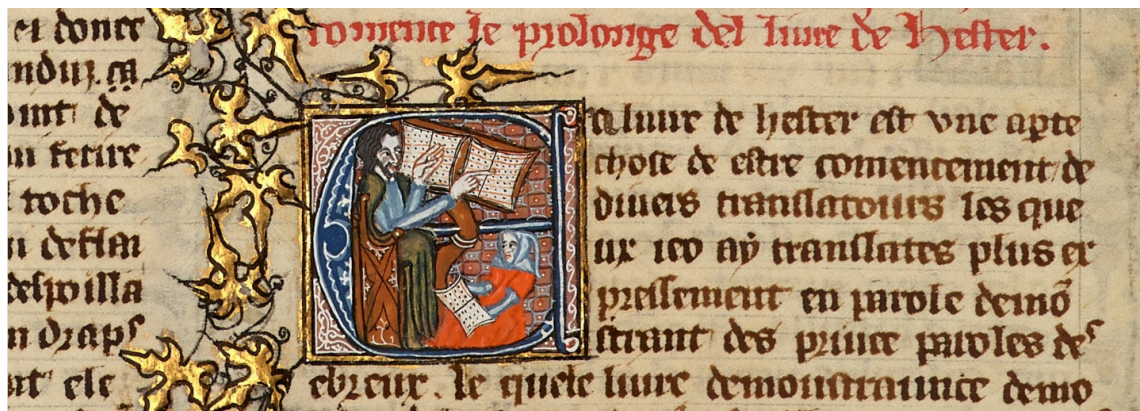 et donce
de
toche
despoilla
draps
ele
comence le prolonge del liure de hester.
liure de hester est vne apte
chose de estre comencement de
diuers translatours les que
ux ieo aẏ translates plus ex
pressement en parole demõ
strant des prince paroles des
ebreux. le quele liure demoustraunce demo